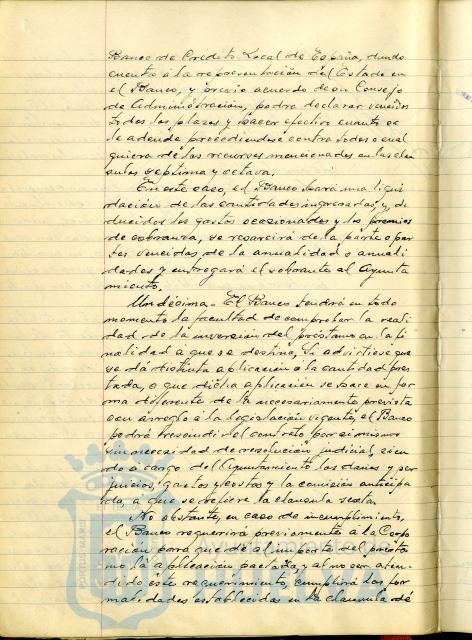 Banco de Crédito Local de España, dando
cuenta á la representación del Estado en
el Banco, y previo acuerdo de su Consejo
de Administración, podrá declarar vencidos
todos los plazos y hacer efectivo cuanto se
le adeude procediendose contra todos o cual
quiera de los recursos mencionados en las cláu
sulas septima y octava.
En este caso, el Banco hará una liqui
dación de las cantidades ingresadas y, de
ducidos los gastos ocasionados y los premios
de cobranza, se resarcirá de la parte o par
tes vencidas de la anualidad o anuali
dades y entregará el sobrante al Ayunta
miento.
Undécima = El Banco tendrá en todo
momento la facultad de comprobar la reali
dad de la inversión del préstamo en la fi
nalidad á que se destina. Si advirtiese que
se dá distinta aplicación á la cantidad pres
tada, o que dicha aplicación se hace en for
ma diferente de la necesariamente prevista
con arreglo á la legislación vigente, el Banco
podrá rescindir el contrato por si mismo
sin necesidad de resolución judicial, sien
do á cargo del Ayuntamiento los daños y per
juicios, gastos y costas y la comisión anticipa
da a que se refiere la clausula sexta.
No obstante, en caso de incumplimiento,
el Banco requerirá previamente á la Corpo
ración para que dé al importe del présta
mo la aplicación pactada, y al no ser aten
dido éste requerimiento, cumplirá las for
malidades establecidas en la clausula dé